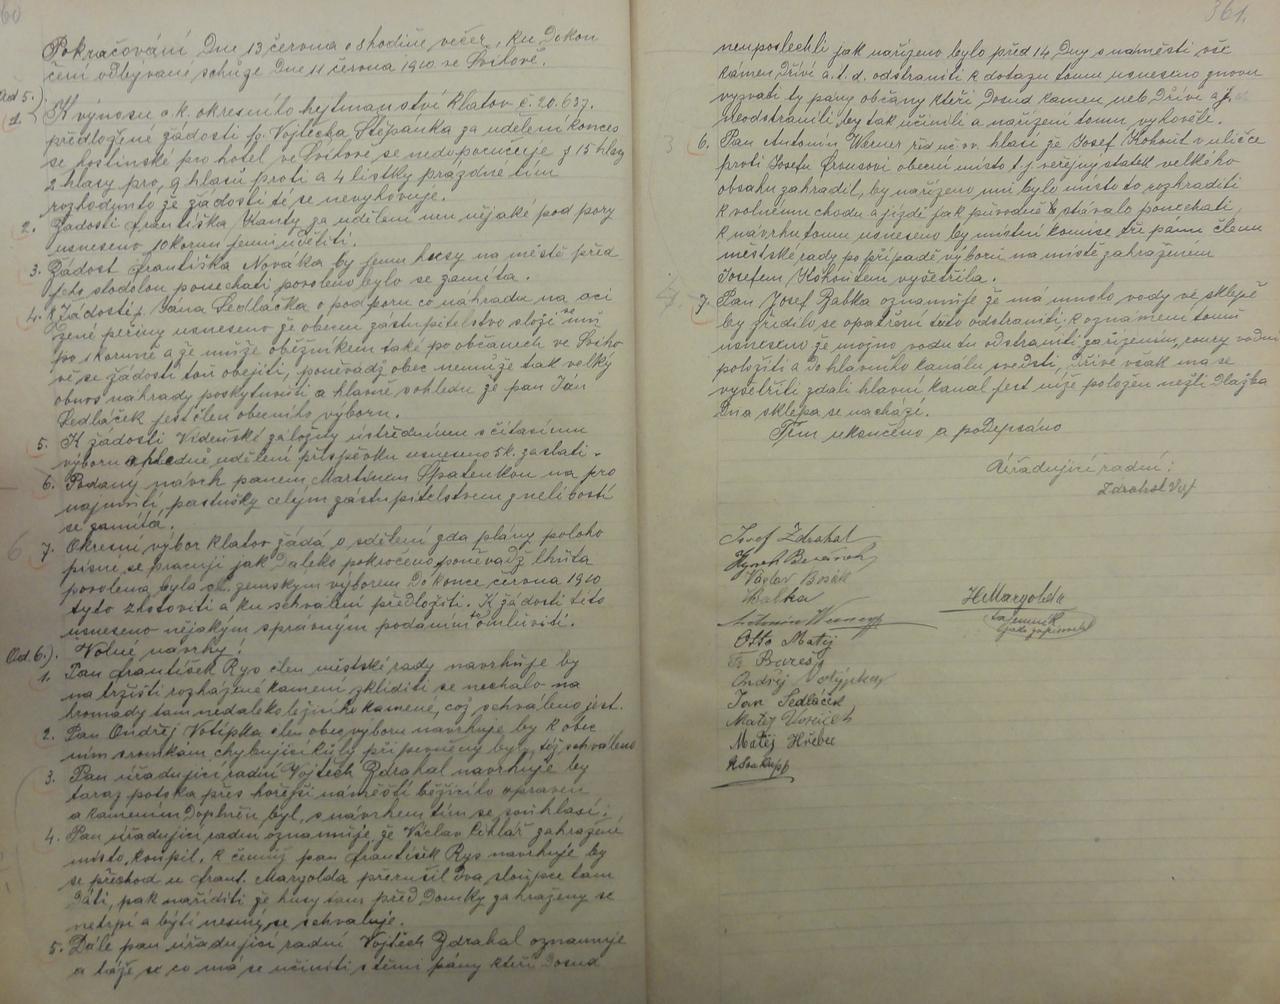 60
Pokračování Dne 13 června o 8 hodině večer, ku Dokon
čení odbývané schůze Dne 11 června 1910 ve Švihově.
Ad 5.)
1. K výnosu c.k. okresního hejtmanství Klatov č. 20.637.
předložené žádosti p. Vojtěcha Štěpánka za udělení konces
se hostinské pro hotel ve Švihově se nedoporučuje z 15 hlasy
2 hlasy pro, 9 hlasů proti a 4 lístky prázdné tím
rozhodnuto že žádosti té se nevyhovuje.
2. Žádosti Františka Kanty za udělení nějaké podpory
usneseno 10 korun jemu uděliti.
3. Žádost Františka Nováka by jemu husy na městě před
jeho stodolou ponechati povoleno bylo se zamítá.
4. K Žádosti p. Jána Sedláčka o podporu co náhradu na
žené peřiny usneseno že obecní zástupitelstvo složí se muž
po 1 koruně a že může oběžníkem také po občanech ve Šviho
vě se žádostí touž obejíti, poněvadž obec nemůže tak velký
obnos náhrady poskytnouti a hlavně vohledu že pan Ján
Sedláček jest člen obecního výboru.
5. K žádosti Vídeňské záložny ústřednímu sčítacímu
výboru ohledně udělení příspěvku usneseno 5 k. zaslati.
6. Podaný návrh panem Martinem Špatenkou na pro
najmutí, pastušky celým zástupitelstvem z nelibostí
se zamítá.
7. Okresní výbor Klatov žádá o sdělení zda plány poloho
pisné se pracují jak Daleko pokročeno poněvadž lhůta
povolena byla zemským výborem Do konce června 1910
tyto zhotoviti a ku schválení předložiti. K žádosti této
usneseno nějakým správným podáním to omluviti.
Ad. 6.). Volné návrhy:
1. Pan František Rys člen městské rady navrhuje by
na tržišti rozházené kamení skliditi se nechalo na
hromady tam nedaleko ležního kamené, což schváleno jest.
2. Pan Ondřej Votípka člen obec. výboru navrhuje by k obec
ním stromkám chybující kůly připevněny byly, též schváleno
3. Pan úřadující radní Vojtěch Zdrahal navrhuje by
taras potoka přes hořejší náměstí běžícího opraven
a kamením Doplněn byl, s návrhem tím se souhlasí;
4. Pan úřadující radní oznamuje že Václav Cihlář zahražené
místo, koupil, k čemuž pan František Rys navrhuje by
se přechod u Frant. Margolda přerušil Dva sloupce tam
Dáti, pak naříditi že husy tam před Domky zahraženy se
netrpí a býti nesmí, se schvaluje.
5. Dále pan úřadující radní Vojtěch Zdrahal oznamuje
a táže se co má se učiniti s těmi pány kteří Dosud
361.
neuposlechli jak nařízeno bylo před 14 Dny s náměstí vše
kámen Dříví a.t.d. odstraniti k dotazu tomu usneseno znovu
vyzvati ty pány občany kteří Dosud kámen neb Dříví a j.
neodstranili by tak učinili a nařízení tomu vyhověli.
6. Pan Antonín Werner hlásí že Josef Kohout v uličce
proti Josefu Krousovi obecní místo t.j. veřejný statek velkého
obsahu zahradil, by nařízeno mu bylo místo to rozhraditi
k volnému chodu a jízdě jak původně stávalo ponechati,
k návrhu tomu usneseno by místní komise tře pánů členů
městské rady po případě výboru na místě zahraženém
Josefem Kohoutem vyšetřila.
7. Pan Josef Žabka oznamuje že má mnoho vody ve sklepě
by zřídilo se opatření tuto odstraniti; k oznámení tomu
usneseno že možno vodu tu odstraniti zařízením, roury vodní
položiti a do hlavního kanálu svedsti, Dříve však má se
vyšetřiti zdali hlavní kanál jest níže položen nežli Dlažba
Dna sklepa se nachází.
Tím ukončeno a podepsáno
Úřadující radní:
Zdrahal Vojt
Josef Zdrahal
Hynek
Václav Bosák
Žabka
Antonín Werner
Otto Matěj
Fr Bareš
Ondřej Votýpka
Jan Sedláček
Matěj
Matěj Hřebec
H Margolda
tajemník
jako zapisovatel